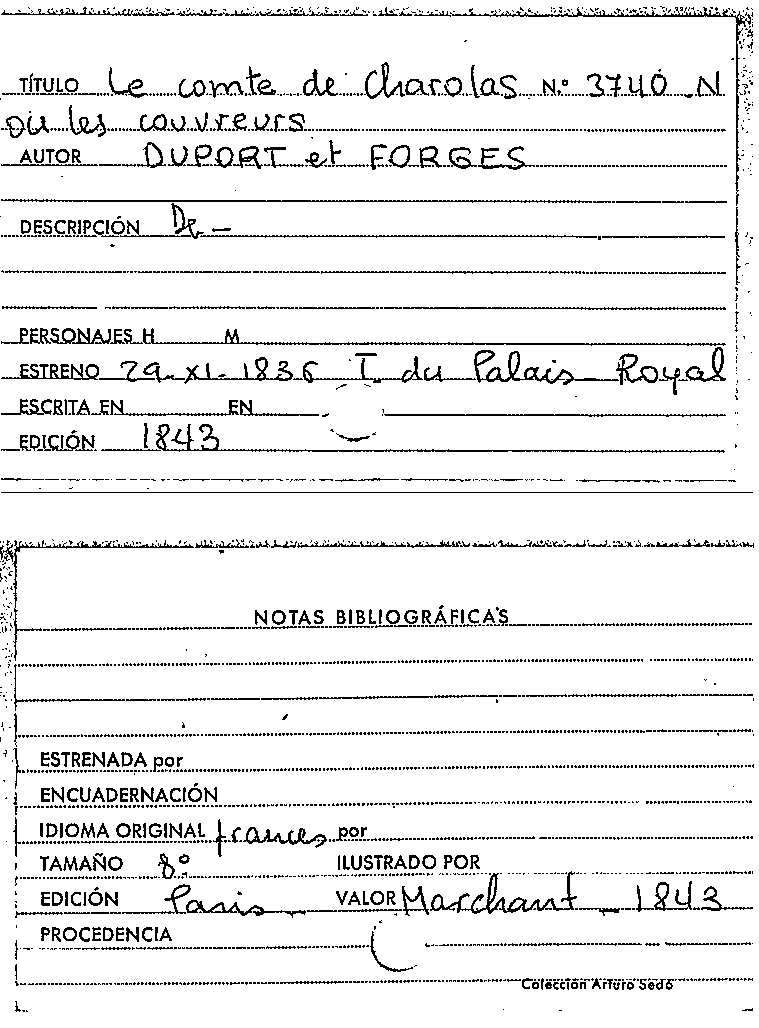 TÍTULO Le comte de Charolas N.º 3740 N
où les couvreurs
AUTOR DUPORT et FORGES
DESCRIPCIÓN De —
PERSONAJES H M
ESTRENO 29-XI-1836 T. du Palais Royal
ESCRITA EN EN
EDICIÓN 1843
NOTAS BIBLIOGRÁFICAS
ESTRENADA por
ENCUADERNACIÓN
IDIOMA ORIGINAL frances por
TAMAÑO 8º ILUSTRADO POR
EDICIÓN Paris VALOR Marchant - 1843
PROCEDENCIA
Colección Arturo Sedó